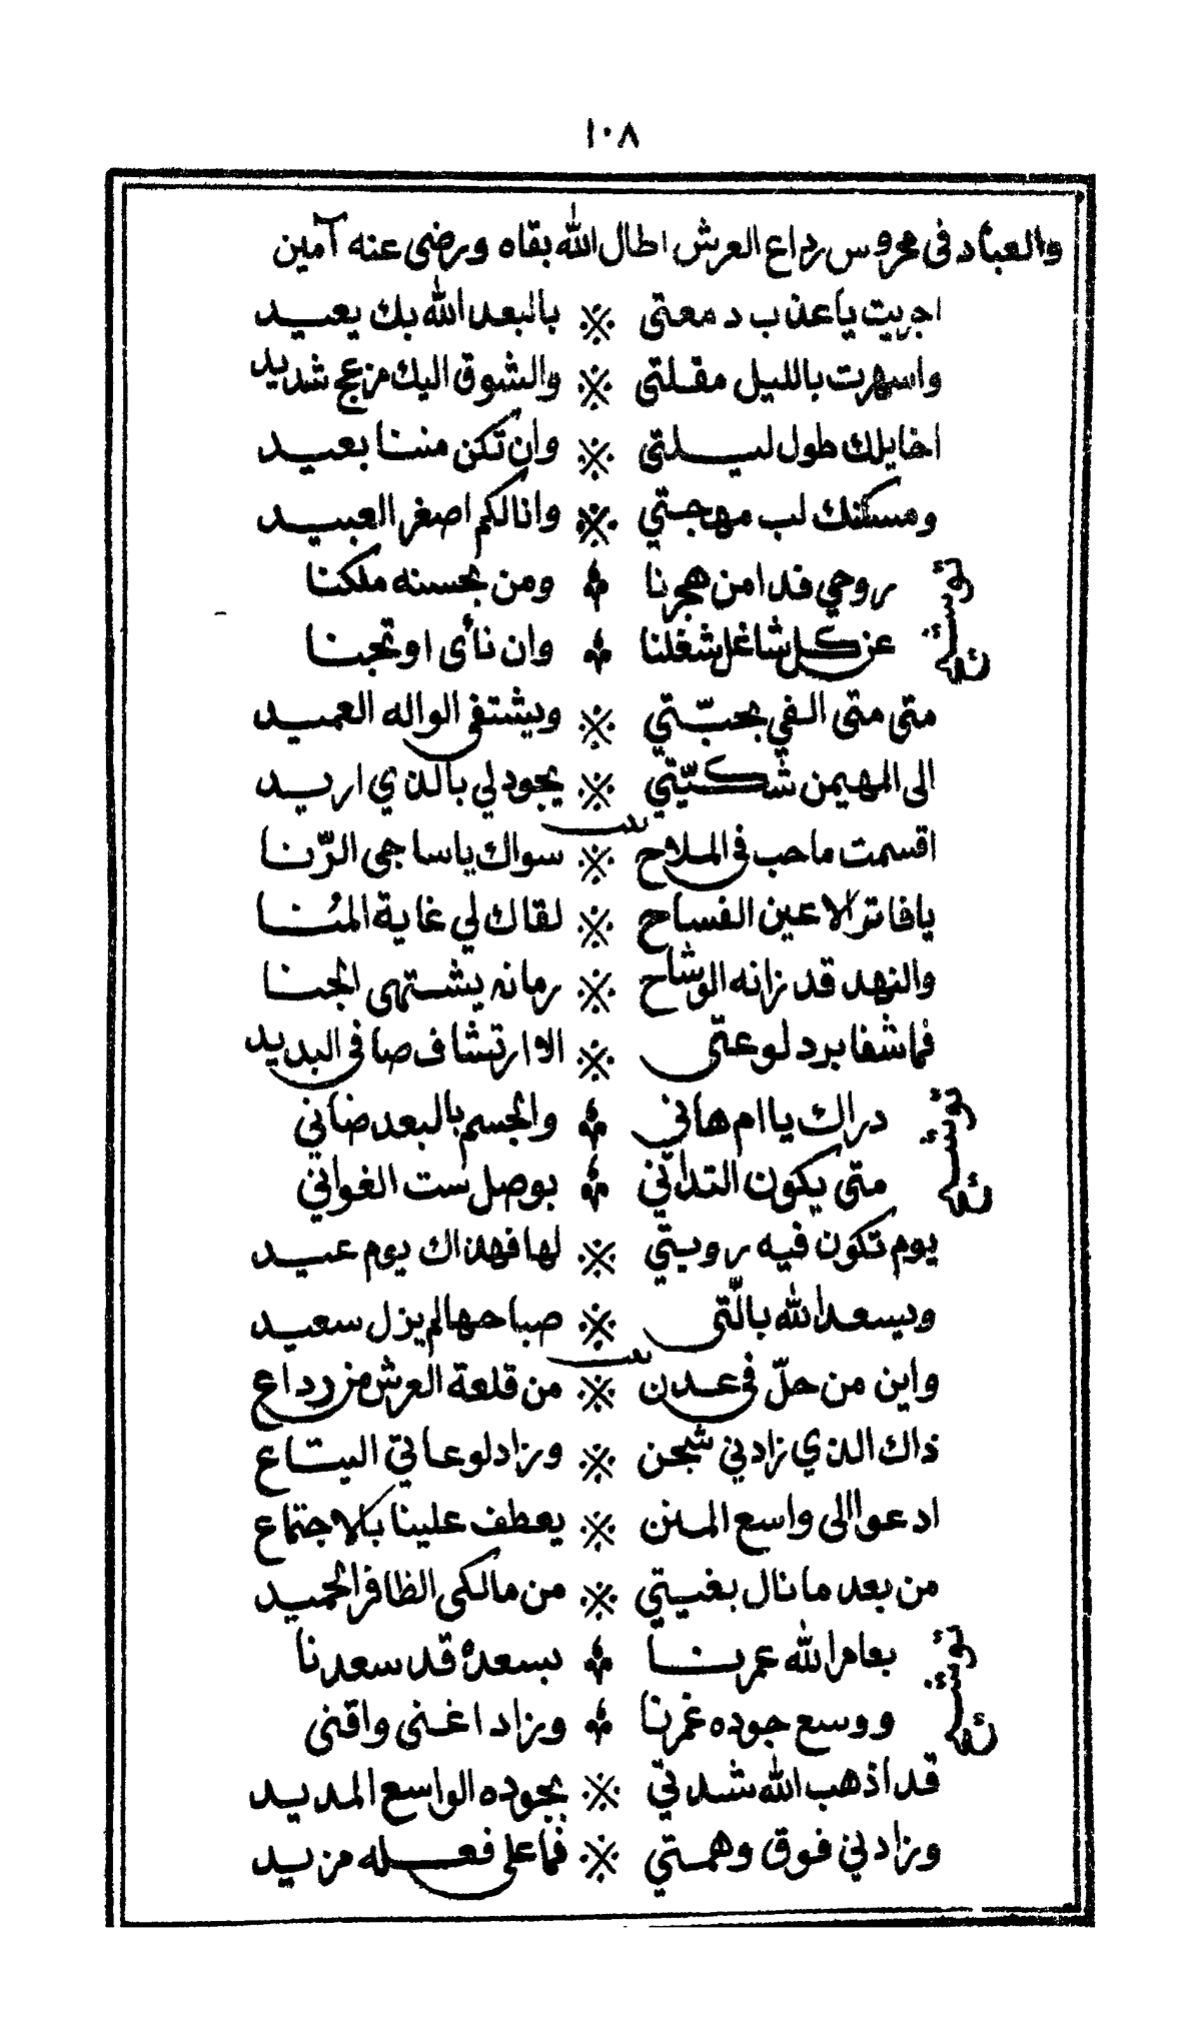 ١٠٨
والعباد فى محروس رداع العرش اطال الله بقاه ورضى عنه آمين
اجريت ياعذب دمعتى ※ بالبعد الله بك يعيد
واسهرت بالليل مقلتى ※ والشوق اليك مزعج شديد
اخايلك طول ليلتى ※ وان تكن مننا بعيد
ومسكنك لب مهجتي ※ وانا لكم اصغر العبيد
توشيح
روحي فدا من هجرنا ومن بحسنه ملكنا
عن كل شاغل شغلنا وان نأى او تجنا
متى متى الفي بحبّتي ※ ويشتفى الواله العميد
الى المهيمن شكيّتي ※ يجود لي بالذي اريد
بيت
اقسمت ماحب فى الملاح ※ سواك ياساجى الرّنا
يافاتر الاعين الفساح ※ لقاك لي غاية المُنا
والنهد قد زانه الوشاح ※ رمانه يشتهى الجنا
فما شفا برد لوعتى ※ الا ارتشاف صافى البديد
توشيح
دراك ياام هاني والجسم بالبعد ضاني
متى يكون التداني بوصل ست الغواني
يوم تكون فيه رويتي ※ لها فهذاك يوم عيد
ويسعد الله بالّتى ※ صباحها لم يزل سعيد
بيت
واين من حلّ فى عدن ※ من قلعة العرش من رداع
ذاك الذي زادني شجن ※ وزاد لوعاتي التياع
ادعوا الى واسع المنن ※ يعطف علينا بالاجتماع
من بعد ما نال بغيتي ※ من مالكى الظافر الحميد
توشيح
بعامر الله عمرنا بسعده قد سعدنا
ووسع جوده غمرنا وزاد اغنى واقنى
قد اذهب الله شدتي ※ بجوده الواسع المديد
وزادني فوق وهمتي ※ فما على فعله مزيد